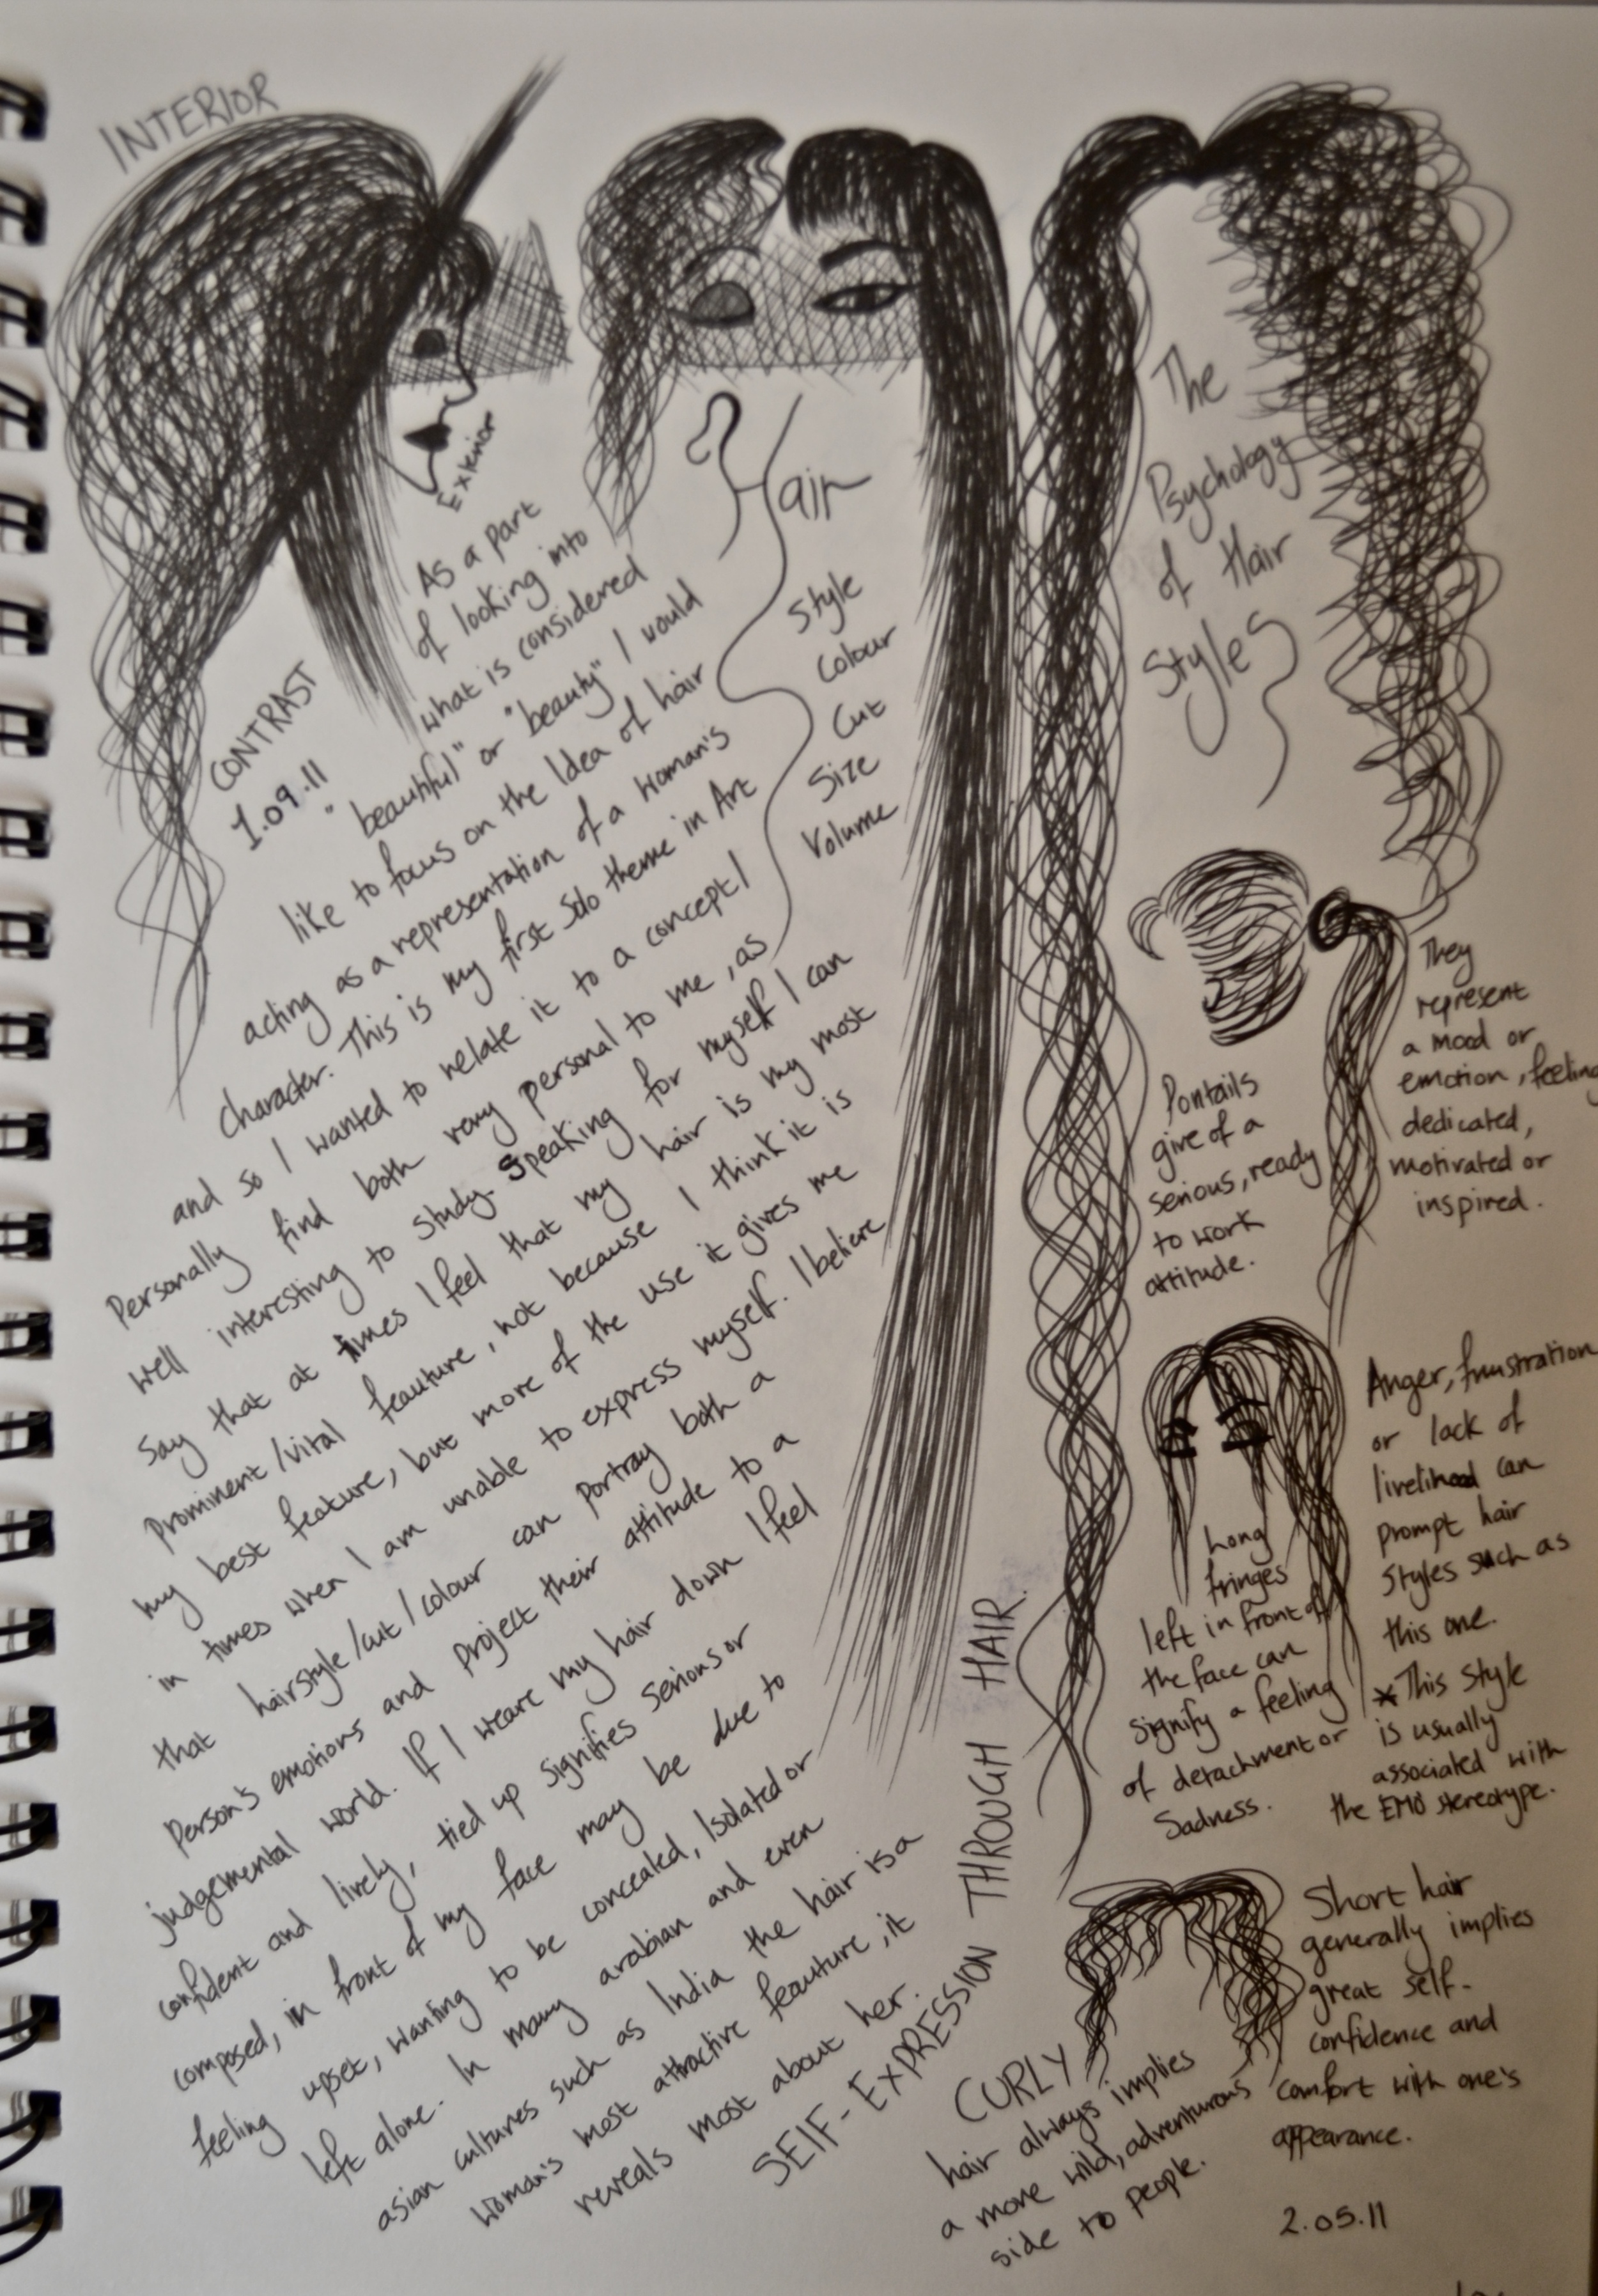 INTERIOR
Exterior
CONTRAST
1.09.11
As a part
of looking into
what is considered
"beautiful" or "beauty" I would
like to focus on the Idea of hair
acting as a representation of a woman's
character. This is my first solo theme in Art
and so I wanted to relate it to a concept I
Personally find both very personal to me, as
well interesting to study. Speaking for myself I can
say that at times I feel that my hair is my most
prominent/vital feauture, not because I think it is
my best feature, but more of the use it gives me
in times when I am unable to express myself. I believe
that hairstyle/cut/colour can portray both a
Person's emotions and project their attitude to a
judgemental world. If I weare my hair down I feel
confident and lively, tied up signifies serious or
composed, in front of my face may be due to
feeling upset, wanting to be concealed, Isolated or
left alone. In many arabian and even
asian cultures such as India the hair is a
woman's most attractive feauture, it
reveals most about her.
Hair
Style
Colour
Cut
Size
Volume
SElF-EXPRESSION THROUGH HAIR.
The
Psychology
of Hair
Styles
Pontails
give of a
serious, ready
to work
attitude.
They
represent
a mood or
emotion, feeling
dedicated,
motivated or
inspired.
Long
fringes
left in front of
the face can
signify a feeling
of detachment or
Sadness.
Anger, frustration
or lack of
livelihood can
prompt hair
styles such as
this one.
*This style
is usually
associated with
the EMO stereotype.
CURLY
hair always implies
a more wild, adventurous
side to people.
Short hair
generally implies
great self-
confidence and
comfort with one's
appearance.
2.05.11